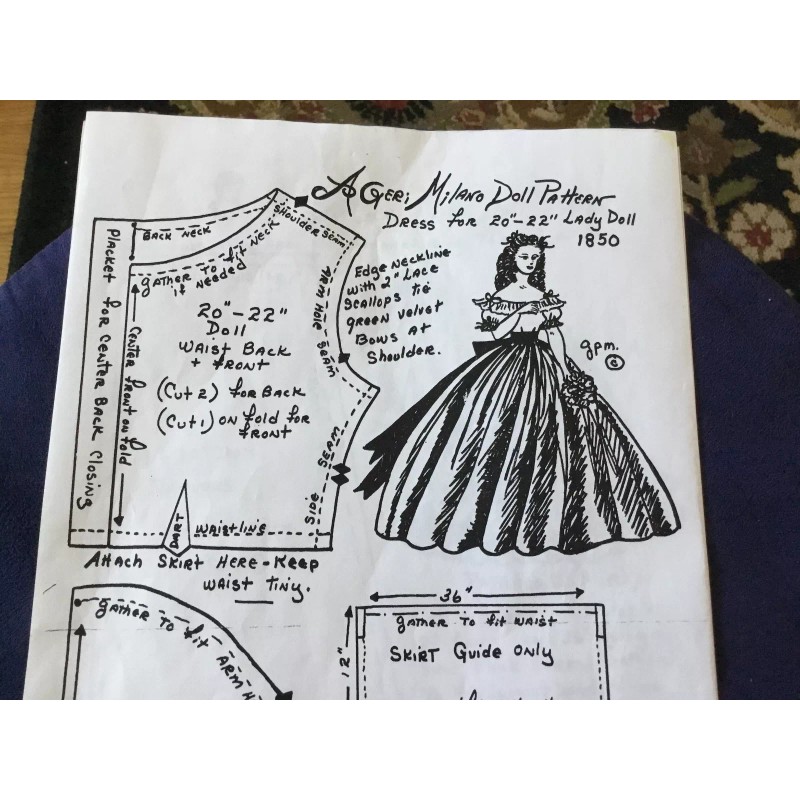 A Geri Milano Doll Pattern
Dress for 20"-22" Lady Doll
1850
Edge Neckline
with 2" Lace
scallops tie
green velvet
Bows at
Shoulder.
gpm.
©
Back Neck
Shoulder Seam
gather to fit neck
if needed
Placket for Center Back Closing
Center front on fold
Arm Hole Seam
20"-22"
Doll
Waist Back
+ front
(Cut 2) for Back
(Cut 1) on fold for
front
Side Seam
Dart
Waistline
Attach Skirt Here - Keep
waist tiny.
gather to fit Arm H
36"
gather to fit waist
12"
Skirt Guide Only